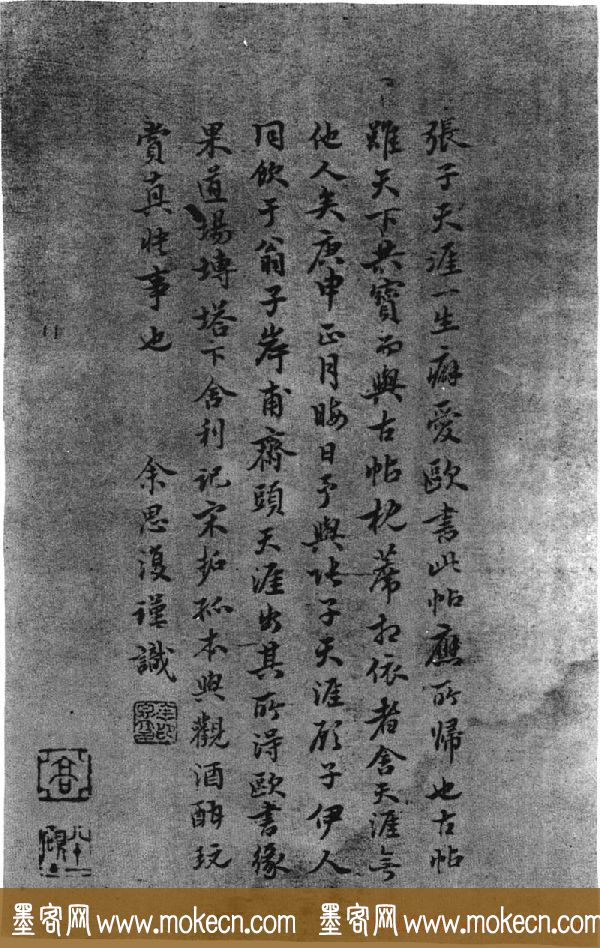 張子天涯一生癖愛歐書此帖應所歸也古帖
雖天下共寶而與古帖枕藉相依者舍天涯無
他人矣庚申正月晦日予與張子天涯顧子伊人
同飲于翁子岸甫齋頭天涯出其所得歐書緣
果道場塼塔下舍利記宋拓孤本與觀酒酣玩
賞真快事也 余思復謹識
墨客网 www.mokecn.com 墨客网 www.mokecn.com